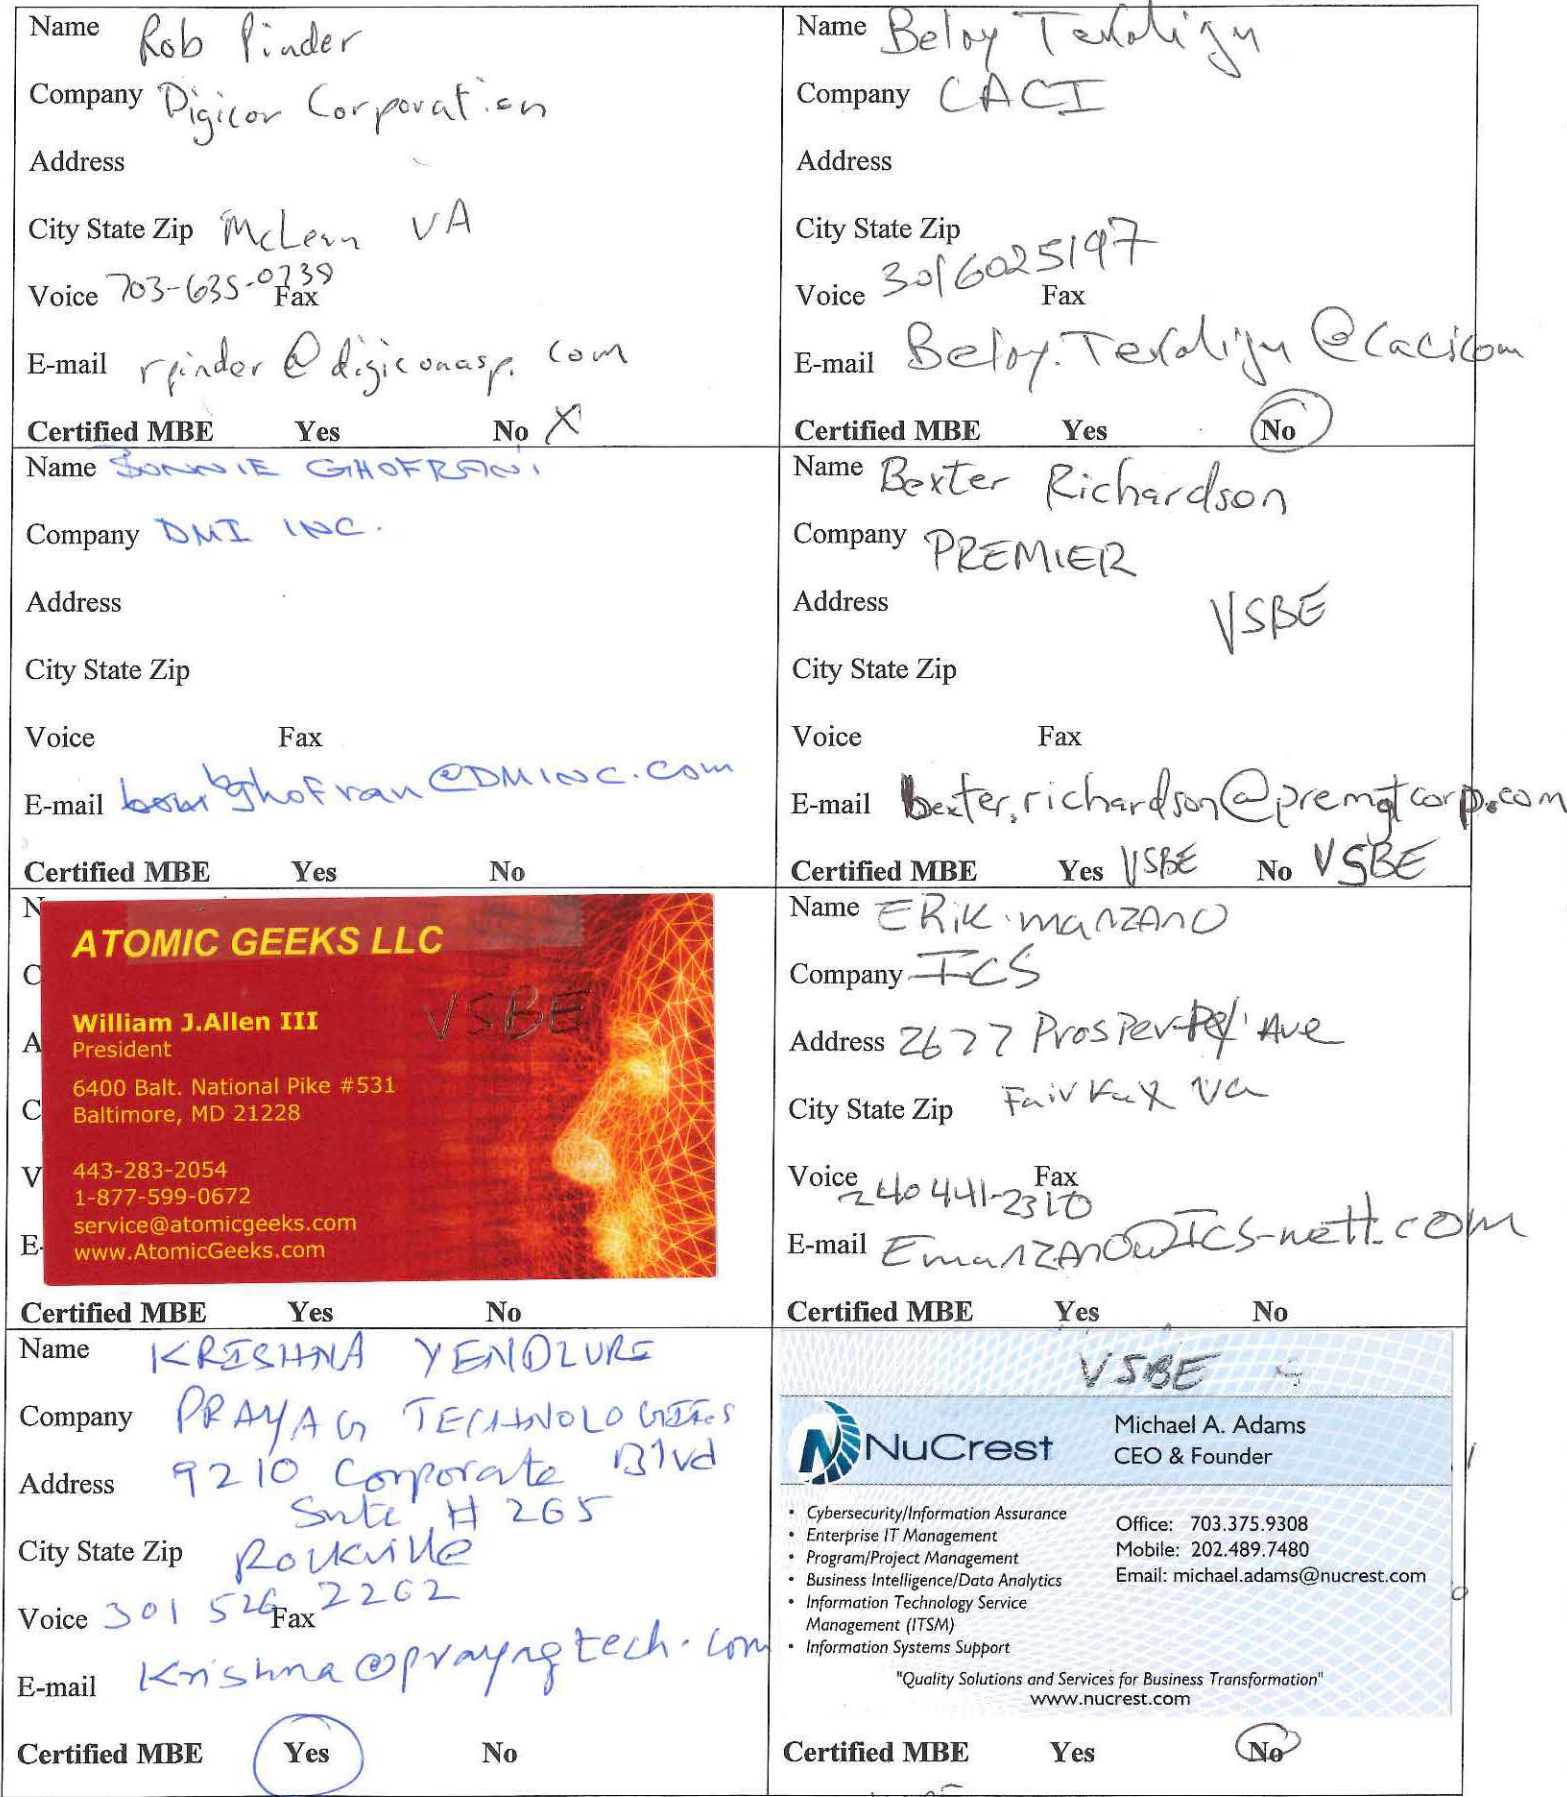 Name Rob Pinder
Company Digicor Corporation
Address
City State Zip McLean VA
Voice 703-635-0739 Fax
E-mail rpinder@digiconasp.com
Certified MBE Yes No X
Name Beloy
Company CACI
Address
City State Zip
Voice 3016025197 Fax
E-mail
Certified MBE Yes No
Name BONNIE GHOFRANI
Company DMI INC.
Address
City State Zip
Voice Fax
E-mail bghofran@DMINC.com
Certified MBE Yes No
Name Bexter Richardson
Company PREMIER
Address
VSBE
City State Zip
Voice Fax
E-mail bexter.richardson@premgtcorp.com
Certified MBE Yes VSBE No VSBE
N
C
A
C
V
E-
ATOMIC GEEKS LLC
VSBE
William J.Allen III
President
6400 Balt. National Pike #531
Baltimore, MD 21228
443-283-2054
1-877-599-0672
service@atomicgeeks.com
www.AtomicGeeks.com
Certified MBE Yes No
Name ERik manzano
Company ICS
Address 2677 Prosperity Ave
City State Zip Fairfax Va
Voice 240 441-2310 Fax
E-mail Emanzano@ICS-nett.com
Certified MBE Yes No
Name KRISHNA YENDLURI
Company PRAYAG TECHNOLOGIES
Address 9210 Corporate Blvd
Suite # 265
City State Zip Rockville
Voice 301 526 2262 Fax
E-mail Krishna@prayagtech.com
Certified MBE Yes No
VSBE
NuCrest
Michael A. Adams
CEO & Founder
• Cybersecurity/Information Assurance
• Enterprise IT Management
• Program/Project Management
• Business Intelligence/Data Analytics
• Information Technology Service
Management (ITSM)
• Information Systems Support
Office: 703.375.9308
Mobile: 202.489.7480
Email: michael.adams@nucrest.com
"Quality Solutions and Services for Business Transformation"
www.nucrest.com
Certified MBE Yes No